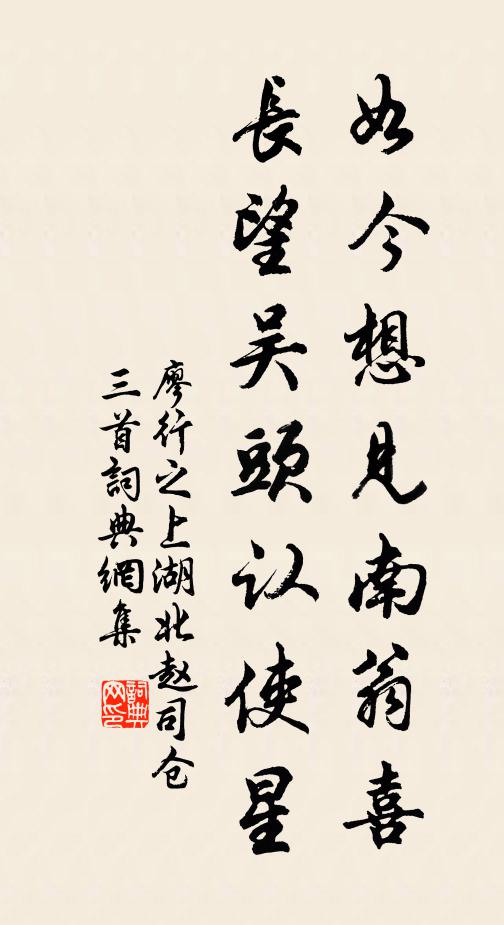 如今想見南翁喜
長望吴頭认使星
廖行之上湖北赵司仓
三首詞典網集
詞典网印